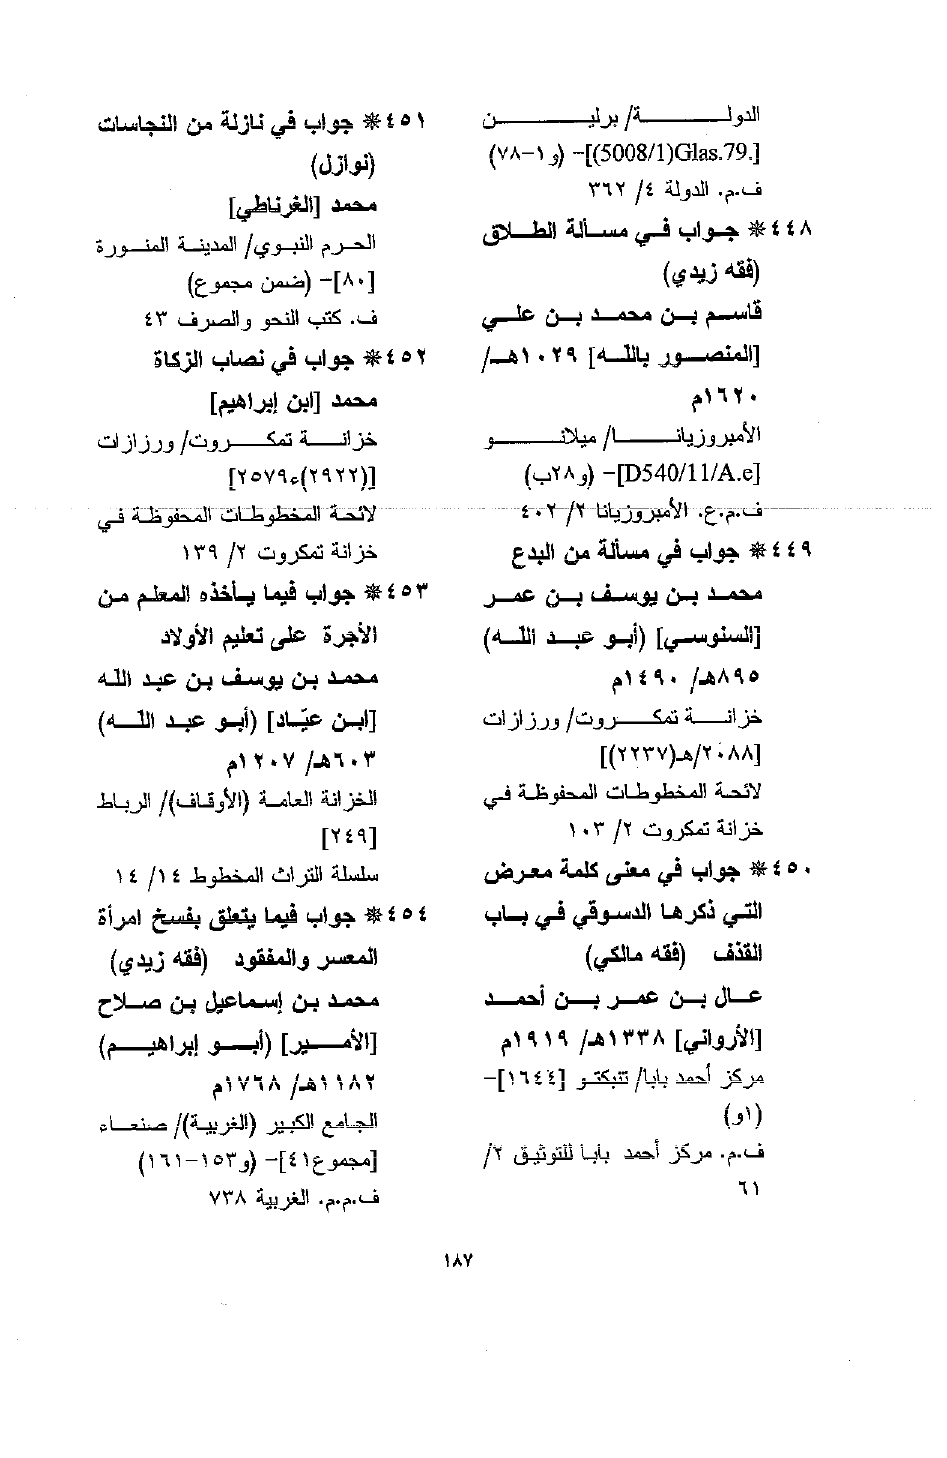 الدولة/ برلين
[.Glas.79(5008/1)]- (و١-٧٨)
ف.م. الدولة ٤/ ٣٦٢
٤٤٨* جواب في مسألة الطلاق
(فقه زيدي)
قاسم بن محمد بن علي
[المنصور بالله] ١٠٢٩هـ/
١٦٢٠م
الأمبروزيانا/ ميلانو
[D540/11/A.e]- (و٢٨ب)
ف.م.ع. الأمبروزيانا ٢/ ٤٠٢
٤٤٩* جواب في مسألة من البدع
محمد بن يوسف بن عمر
[السنوسي] (أبو عبد الله)
٨٩٥هـ/ ١٤٩٠م
خزانة تمكروت/ ورزازات
[٢٠٨٨/هـ(٢٢٣٧)]
لائحة المخطوطات المحفوظة في
خزانة تمكروت ٢/ ١٠٣
٤٥٠* جواب في معنى كلمة معرض
التي ذكرها الدسوقي في باب
القذف (فقه مالكي)
عال بن عمر بن أحمد
[الأرواني] ١٣٣٨هـ/ ١٩١٩م
مركز أحمد بابا/ تنبكتو [١٦٤٤]-
(١و)
ف.م. مركز أحمد بابا للتوثيق ٢/
٦١
٤٥١* جواب في نازلة من النجاسات
(نوازل)
محمد [الغرناطي]
الحرم النبوي/ المدينة المنورة
[٨٠]- (ضمن مجموع)
ف. كتب النحو والصرف ٤٣
٤٥٢* جواب في نصاب الزكاة
محمد [ابن إبراهيم]
خزانة تمكروت/ ورزازات
[(٢٩٢٢)ء٢٥٧٩]
لائحة المخطوطات المحفوظة في
خزانة تمكروت ٢/ ١٣٩
٤٥٣* جواب فيما يأخذه المعلم من
الأجرة على تعليم الأولاد
محمد بن يوسف بن عبد الله
[ابن عيّاد] (أبو عبد الله)
٦٠٣هـ/ ١٢٠٧م
الخزانة العامة (الأوقاف)/ الرباط
[٢٤٩]
سلسلة التراث المخطوط ١٤/ ١٤
٤٥٤* جواب فيما يتعلق بفسخ امرأة
المعسر والمفقود (فقه زيدي)
محمد بن إسماعيل بن صلاح
[الأمير] (أبو إبراهيم)
١١٨٢هـ/ ١٧٦٨م
الجامع الكبير (الغربية)/ صنعاء
[مجموع٤١]- (و١٥٣-١٦١)
ف.م.م. الغربية ٧٣٨
١٨٧